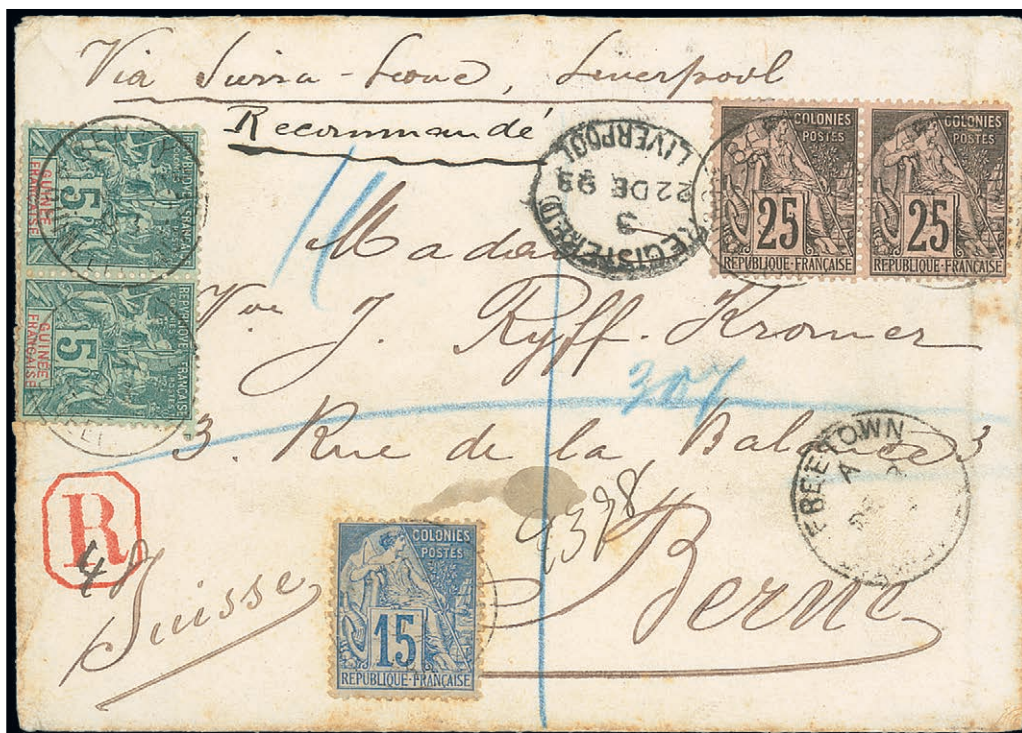 Via Sierra-Leone, Liverpool
Recommandé
REGISTERED
LIVERPOOL
22 DE 93
3
COLONIES
POSTES
25
RÉPUBLIQUE-FRANÇAISE
COLONIES
POSTES
25
RÉPUBLIQUE-FRANÇAISE
5
GUINÉE
FRANÇAISE
5
GUINÉE
FRANÇAISE
Madame
Vve J. Ryff-Kromer
304
3. Rue de la Balance 3
FREETOWN
A
DE
R
4378
Berne
Suisse
COLONIES
POSTES
15
RÉPUBLIQUE-FRANÇAISE